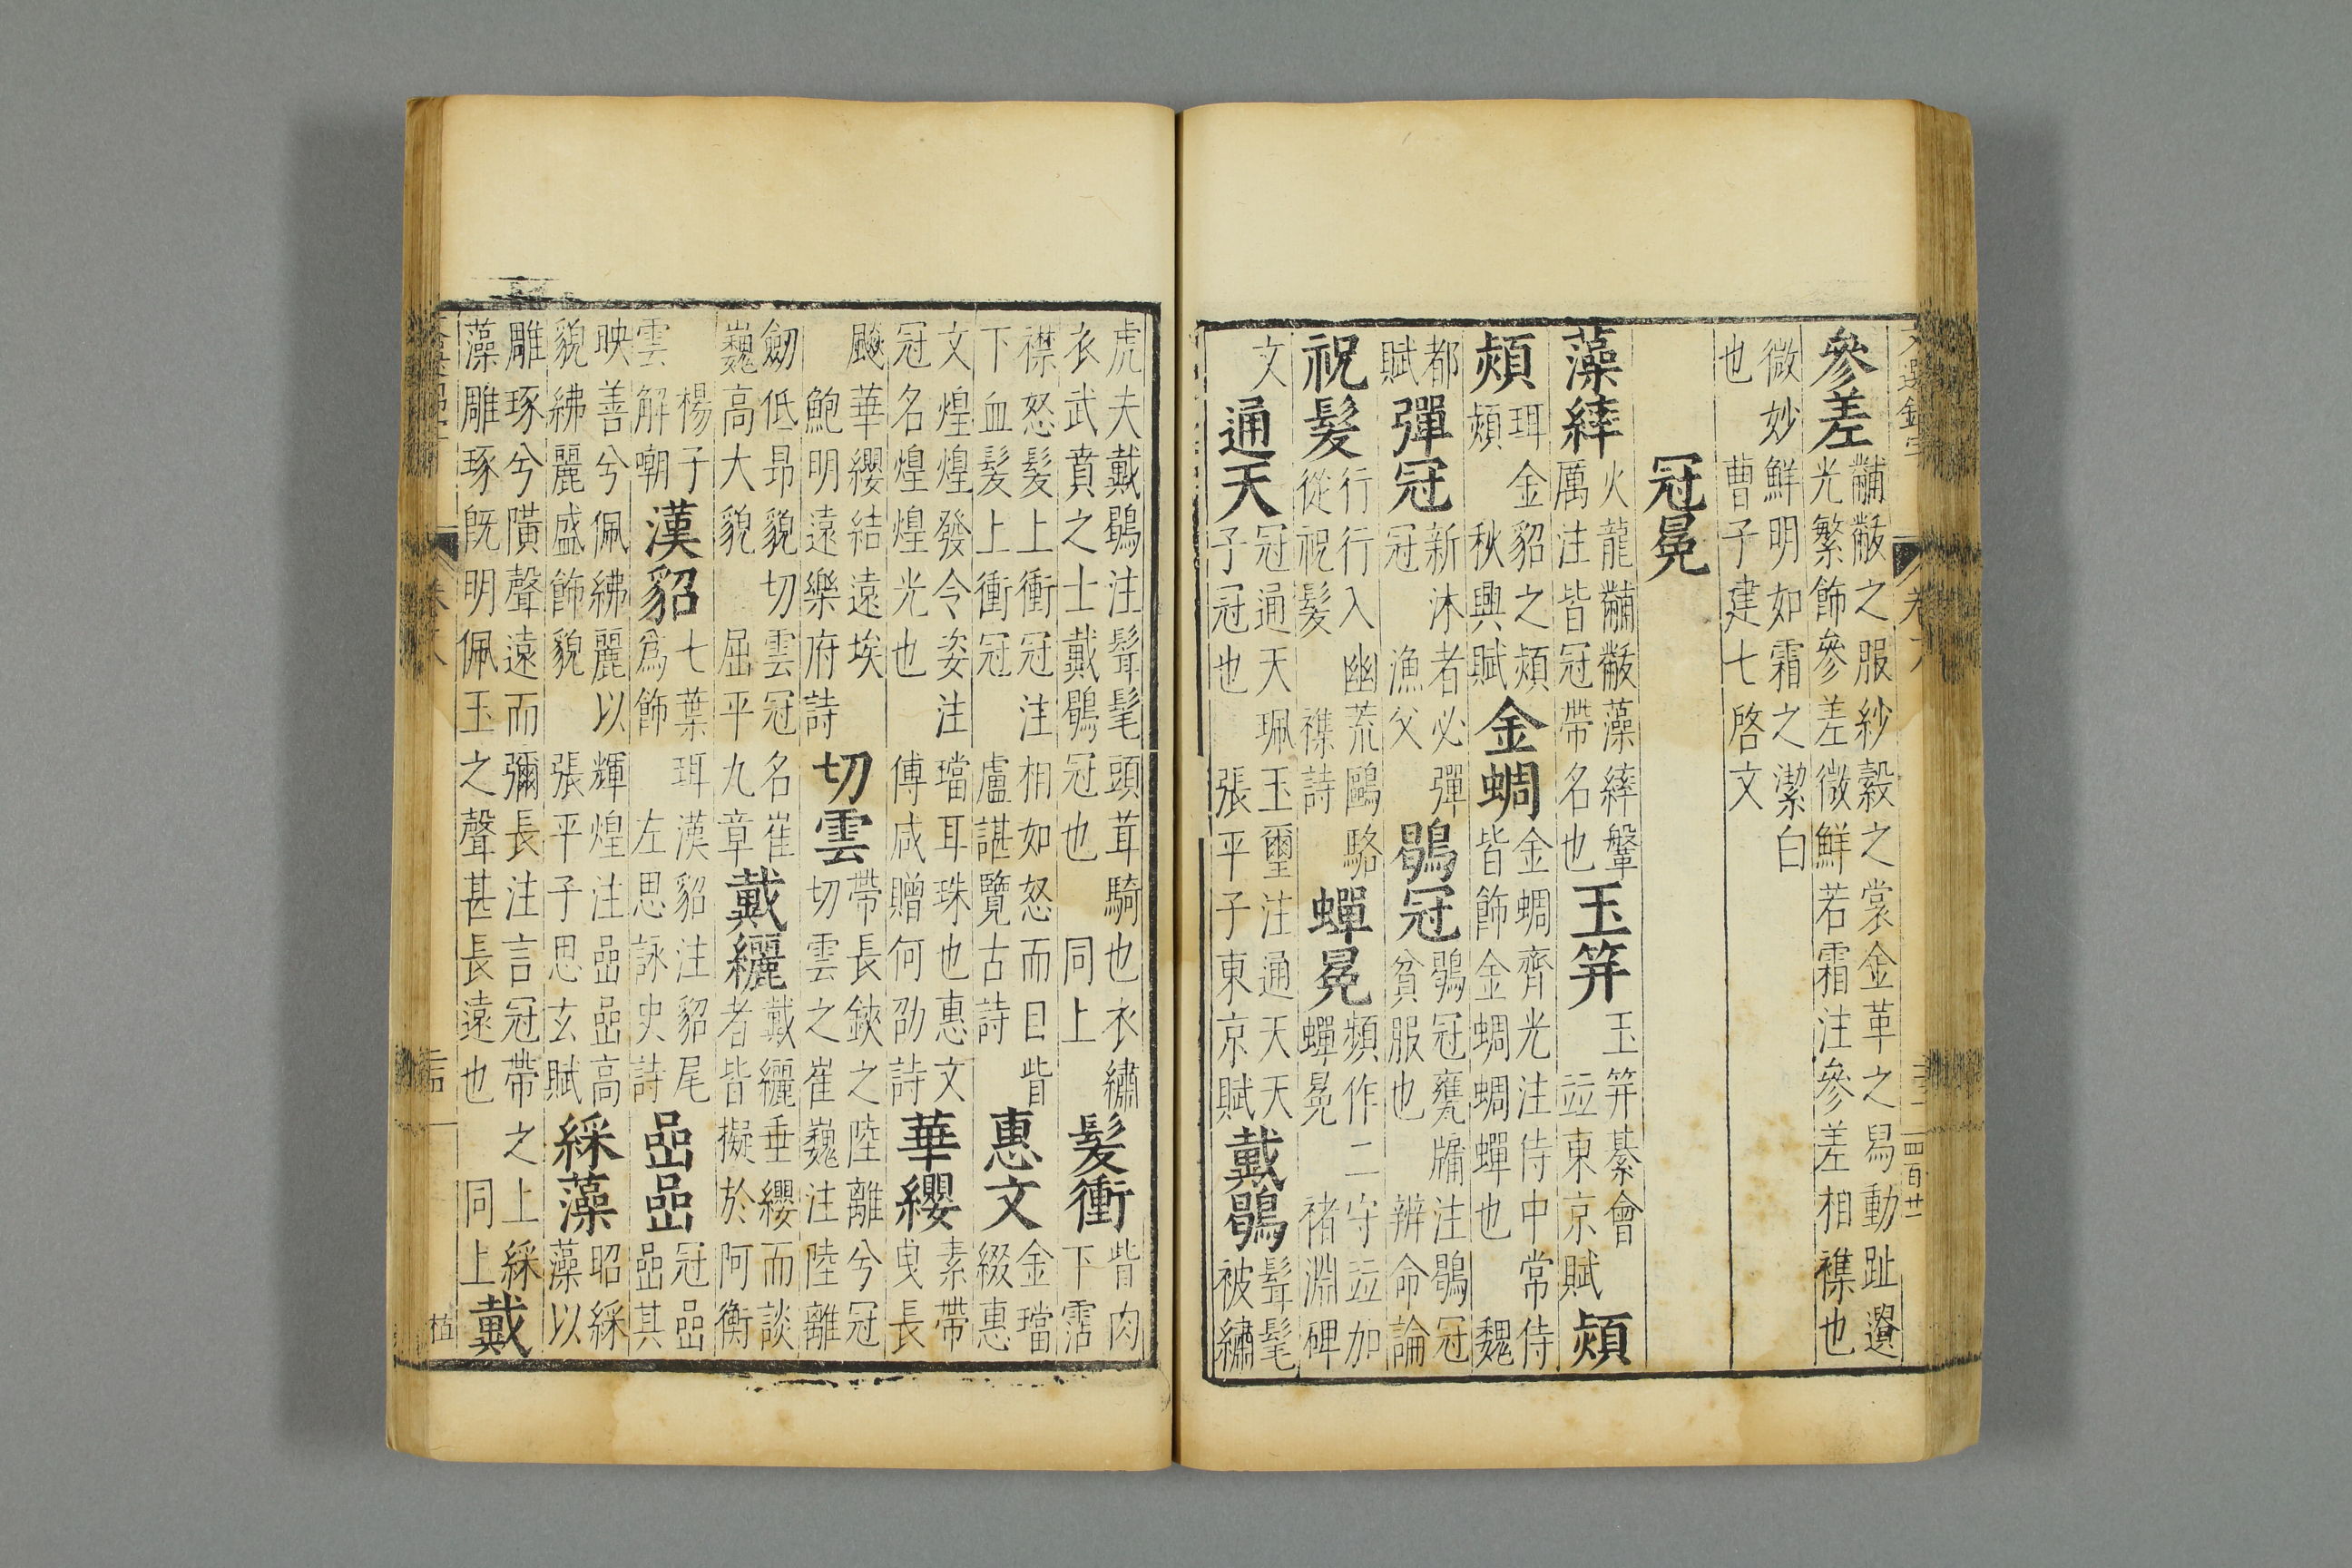 參差黼黻之服紗縠之裳金革之舄動趾遺
光繁飾參差微鮮若霜注參差相襍也
微妙鮮明如霜之潔白
也 曹子建七啓文
冠冕
藻繂火龍黼黻藻繂鞶
厲注皆冠帶名也
玉笄玉笄綦會
竝東京賦
頍
頍珥金貂之頍
頍 秋興賦
金蜩金蜩齊光注侍中常侍
皆飾金蜩蜩蟬也 魏
都
賦
彈冠新沐者必彈
冠 漁父
鶡冠鶡冠甕牖注鶡冠
貧服也 辨命論
祝髮行行入幽荒鷗駱
從祝髮 襍詩
蟬冕頻作二守竝加
蟬冕 褚淵碑
文
通天冠通天珮玉璽注通天天
子冠也 張平子東京賦
戴鶡髶髦
被繡
四百廿一
虎夫戴鶡注髶髦頭茸騎也衣繡
衣武賁之士戴鶡冠也 同上
髮衝眥肉
下霑
襟怒髮上衝冠注相如怒而目眥
下血髮上衝冠 盧諶覽古詩
惠文金璫
綴惠
文煌煌發令姿注璫耳珠也惠文
冠名煌煌光也 傅咸贈何劭詩
華纓素帶
曳長
飈華纓結遠埃
鮑明遠樂府詩
切雲帶長鋏之陸離兮冠
切雲之崔巍注陸離
劒低昻貌切雲冠名崔
巍高大貌 屈平九章
戴纚戴纚垂纓而談
者皆擬於阿衡
楊子
雲解嘲
漢貂七葉珥漢貂注貂尾
爲飾 左思詠史詩
嵒嵒冠嵒
嵒其
映善兮佩紼麗以輝煌注嵒嵒高
貌紼麗盛飾貌 張平子思玄賦
綵藻昭綵
藻以
雕琢兮璜聲遠而彌長注言冠帶之上綵
藻雕琢旣明佩玉之聲甚長遠也 同上
戴